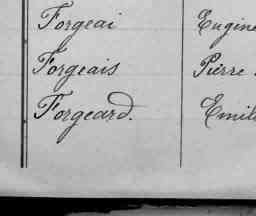 Forgeai Eugène
Forgeais Pierre
Forgeard. Emil